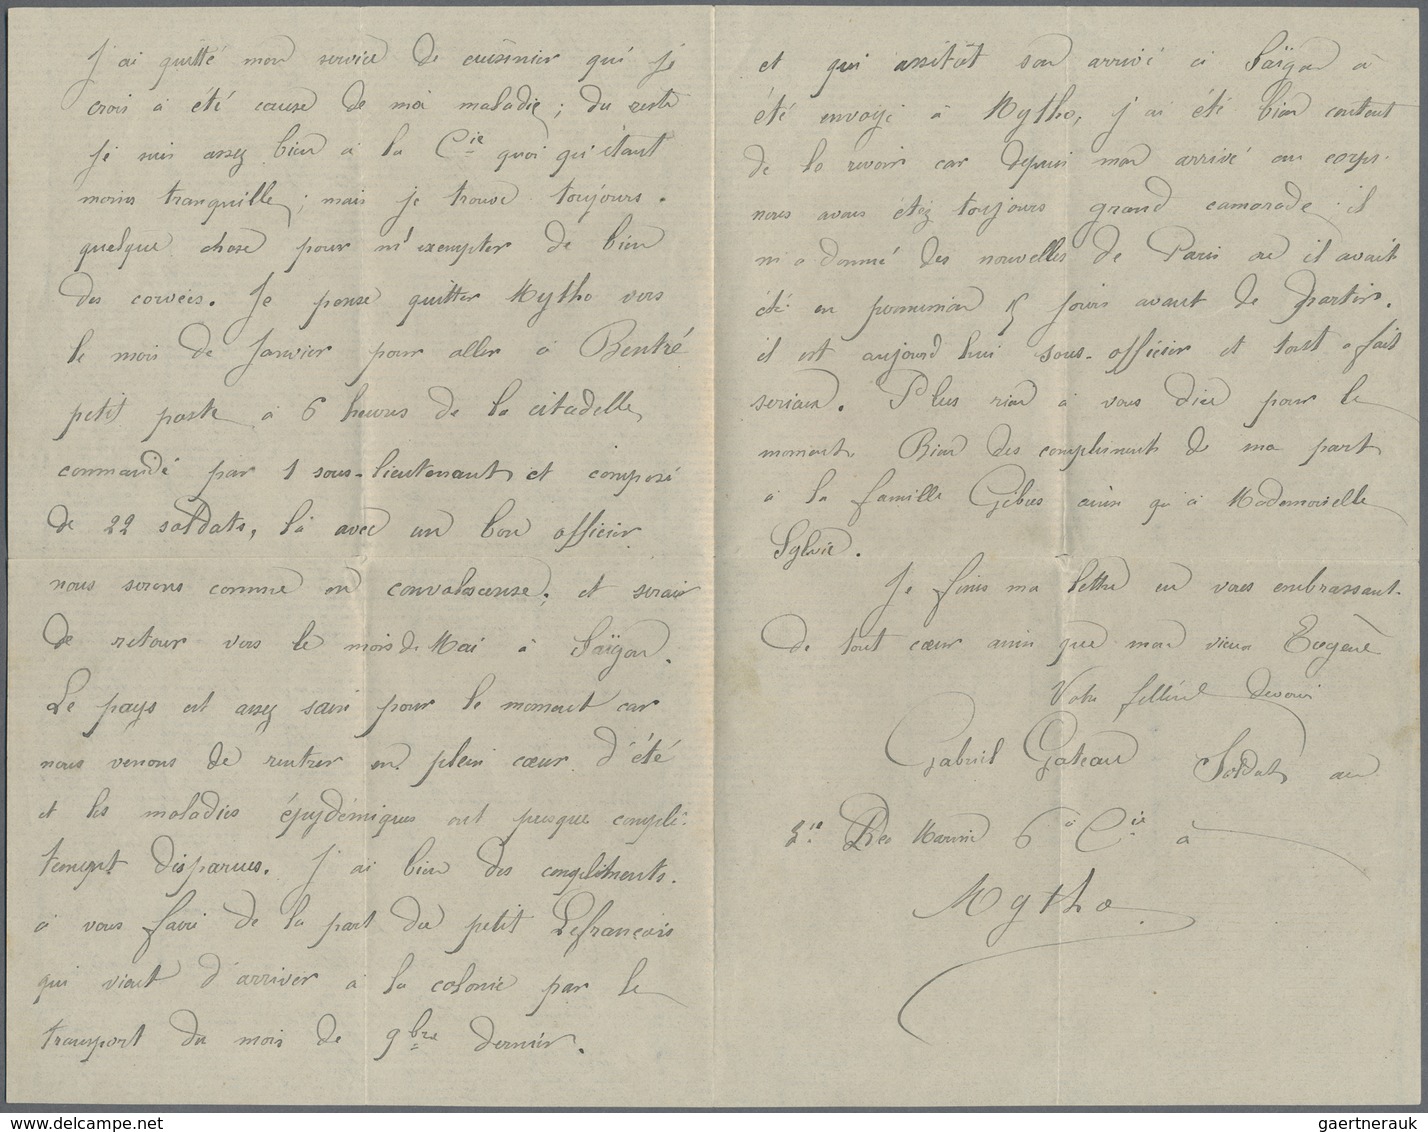 J'ai quitté mon service de cuisinier qui je
crois a été cause de ma maladie; du reste
je suis assez bien à la Cie quoi qu'étant
moins tranquille; mais je trouve toujours.
quelque chose pour m'exempter de bien
des corvées. Je pense quitter Mytho vers
le mois de Janvier pour aller à Bentré
petit poste à 6 heures de la citadelle
commandé par 1 sous-lieutenant et composé
de 22 soldats, là avec un bon officier
nous serons comme en convalescense, et serai
de retour vers le mois de Mai à Saïgon.
Le pays est assez sain pour le moment car
nous venons de rentrer en plein cœur d'été
et les maladies épydémiques ont presque complè-
tement disparues. J'ai bien des compliments.
à vous faire de la part du petit Lefrançois
qui vient d'arriver à la colonie par le
transport du mois de 9bre dernier.
et qui assitôt son arrivé à Saïgon a
été envoyé à Mytho, j'ai été bien content
de la revoir car depuis mon arrivé au corps.
nous avons étez toujours grand camarade il
m'a donné des nouvelles de Paris ou il avait
été en permission 15 jours avant de partir.
il est aujourd'hui sous-officier et tout a fait
serieux. Plus rien à vous dire pour le
moment Bien des compliments de ma part
à la famille Gibus ainsi qu'à Mademoiselle
Sylvie.
Je finis ma lettre en vous embrassant.
de tout cœur ainsi que mon vieux Eugène
Votre filleul devoué
Gabriel Gateau Soldat au
2ie Reg Marine 6e Cie à
Mytho
gaertnerauk @ www.delcampe.net